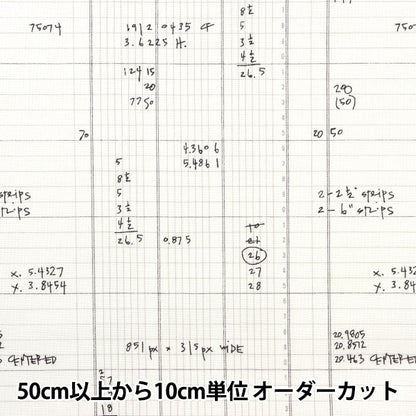 8 1/2
75074
1912 0435 CF
5
3.6225 H.
3 1/2
4 1/2
12415
26.5
20
7750
290
(50)
70
20 50
4.3606
5
5.4861
8 1/2
5
3 1/2
4 1/2
26.5
0.875
26
27
28
strips
2 - 2 1/2" strips
2 - 6" strips
x. 5.4327
y. 3.8454
x. 5.4
y. 3.8
851 px x 315 px wide
20.9805
20.8572
20.463 centered
centered
50cm以上から10cm単位 オーダーカット
18